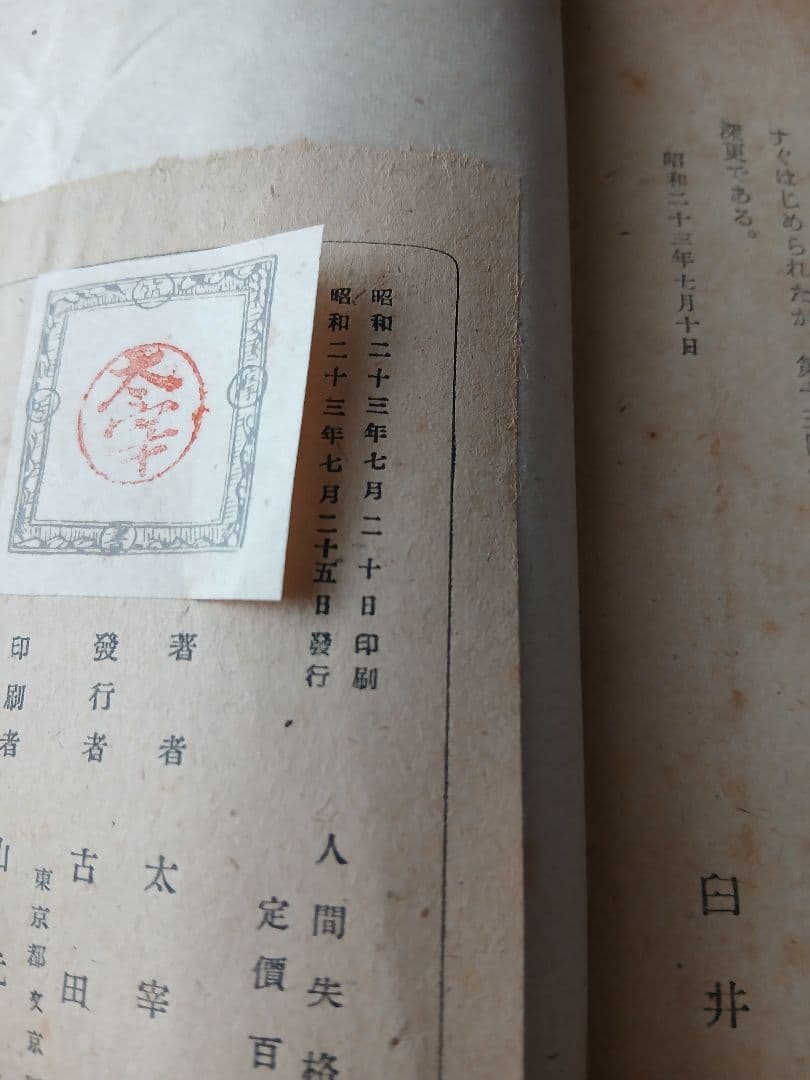 すぐはじめられたが、第
深更である。
昭和二十三年七月十日
臼井
昭和二十三年七月二十日印刷
昭和二十三年七月二十五日發行
人間失格
定價百
著者 太宰
發行者 古田
東京都文京
印刷者 山
太宰